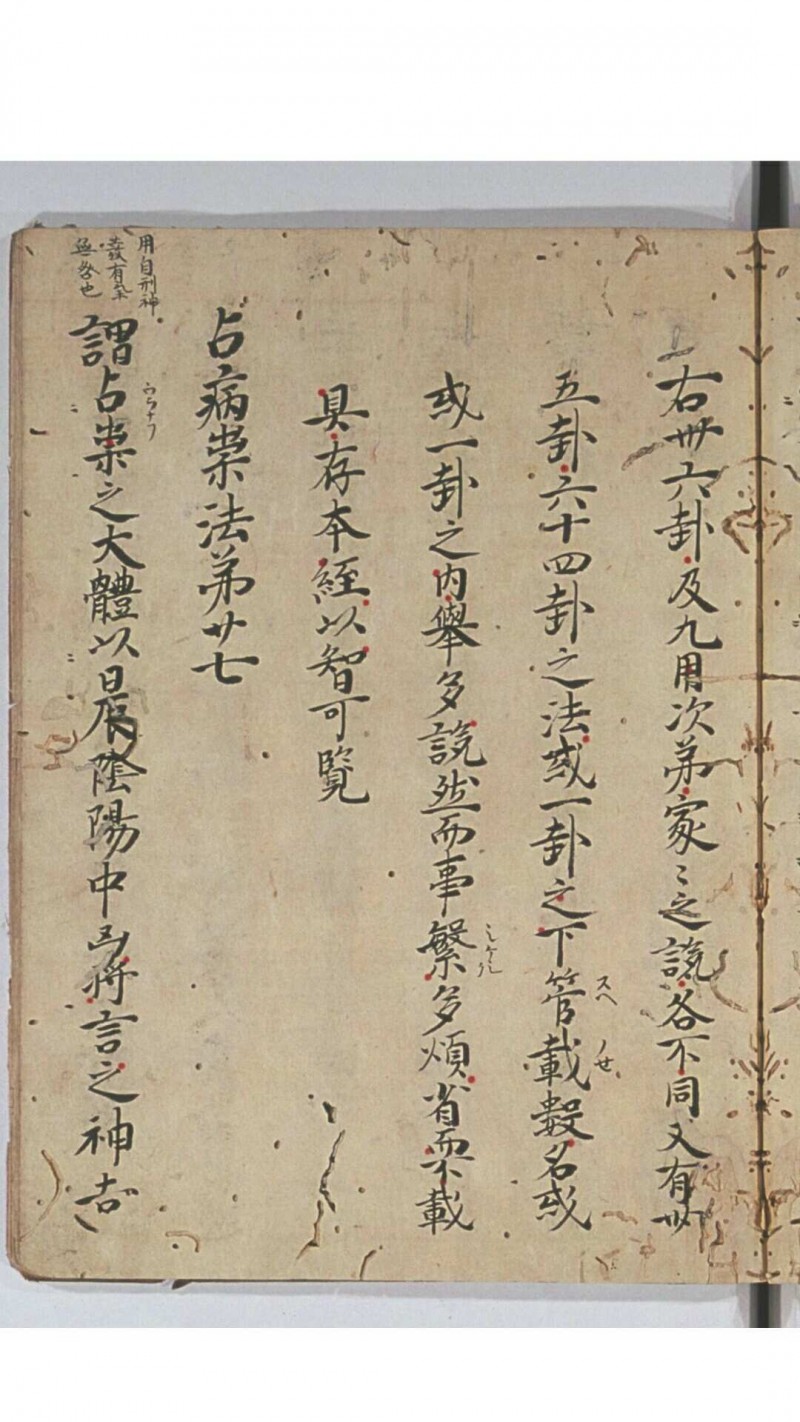 右卅六卦及九用次第家〻之説各不同又有卌
五卦六十四卦之法或一卦之下管載數名或
スヘ
ノせ
或一卦之内舉多説然而事繁多煩省而不載
具存本経以智可覧
占病祟法第廿七
謂占祟之大體以日辰陰陽中凶将言之神吉
用自刑神
無咎也